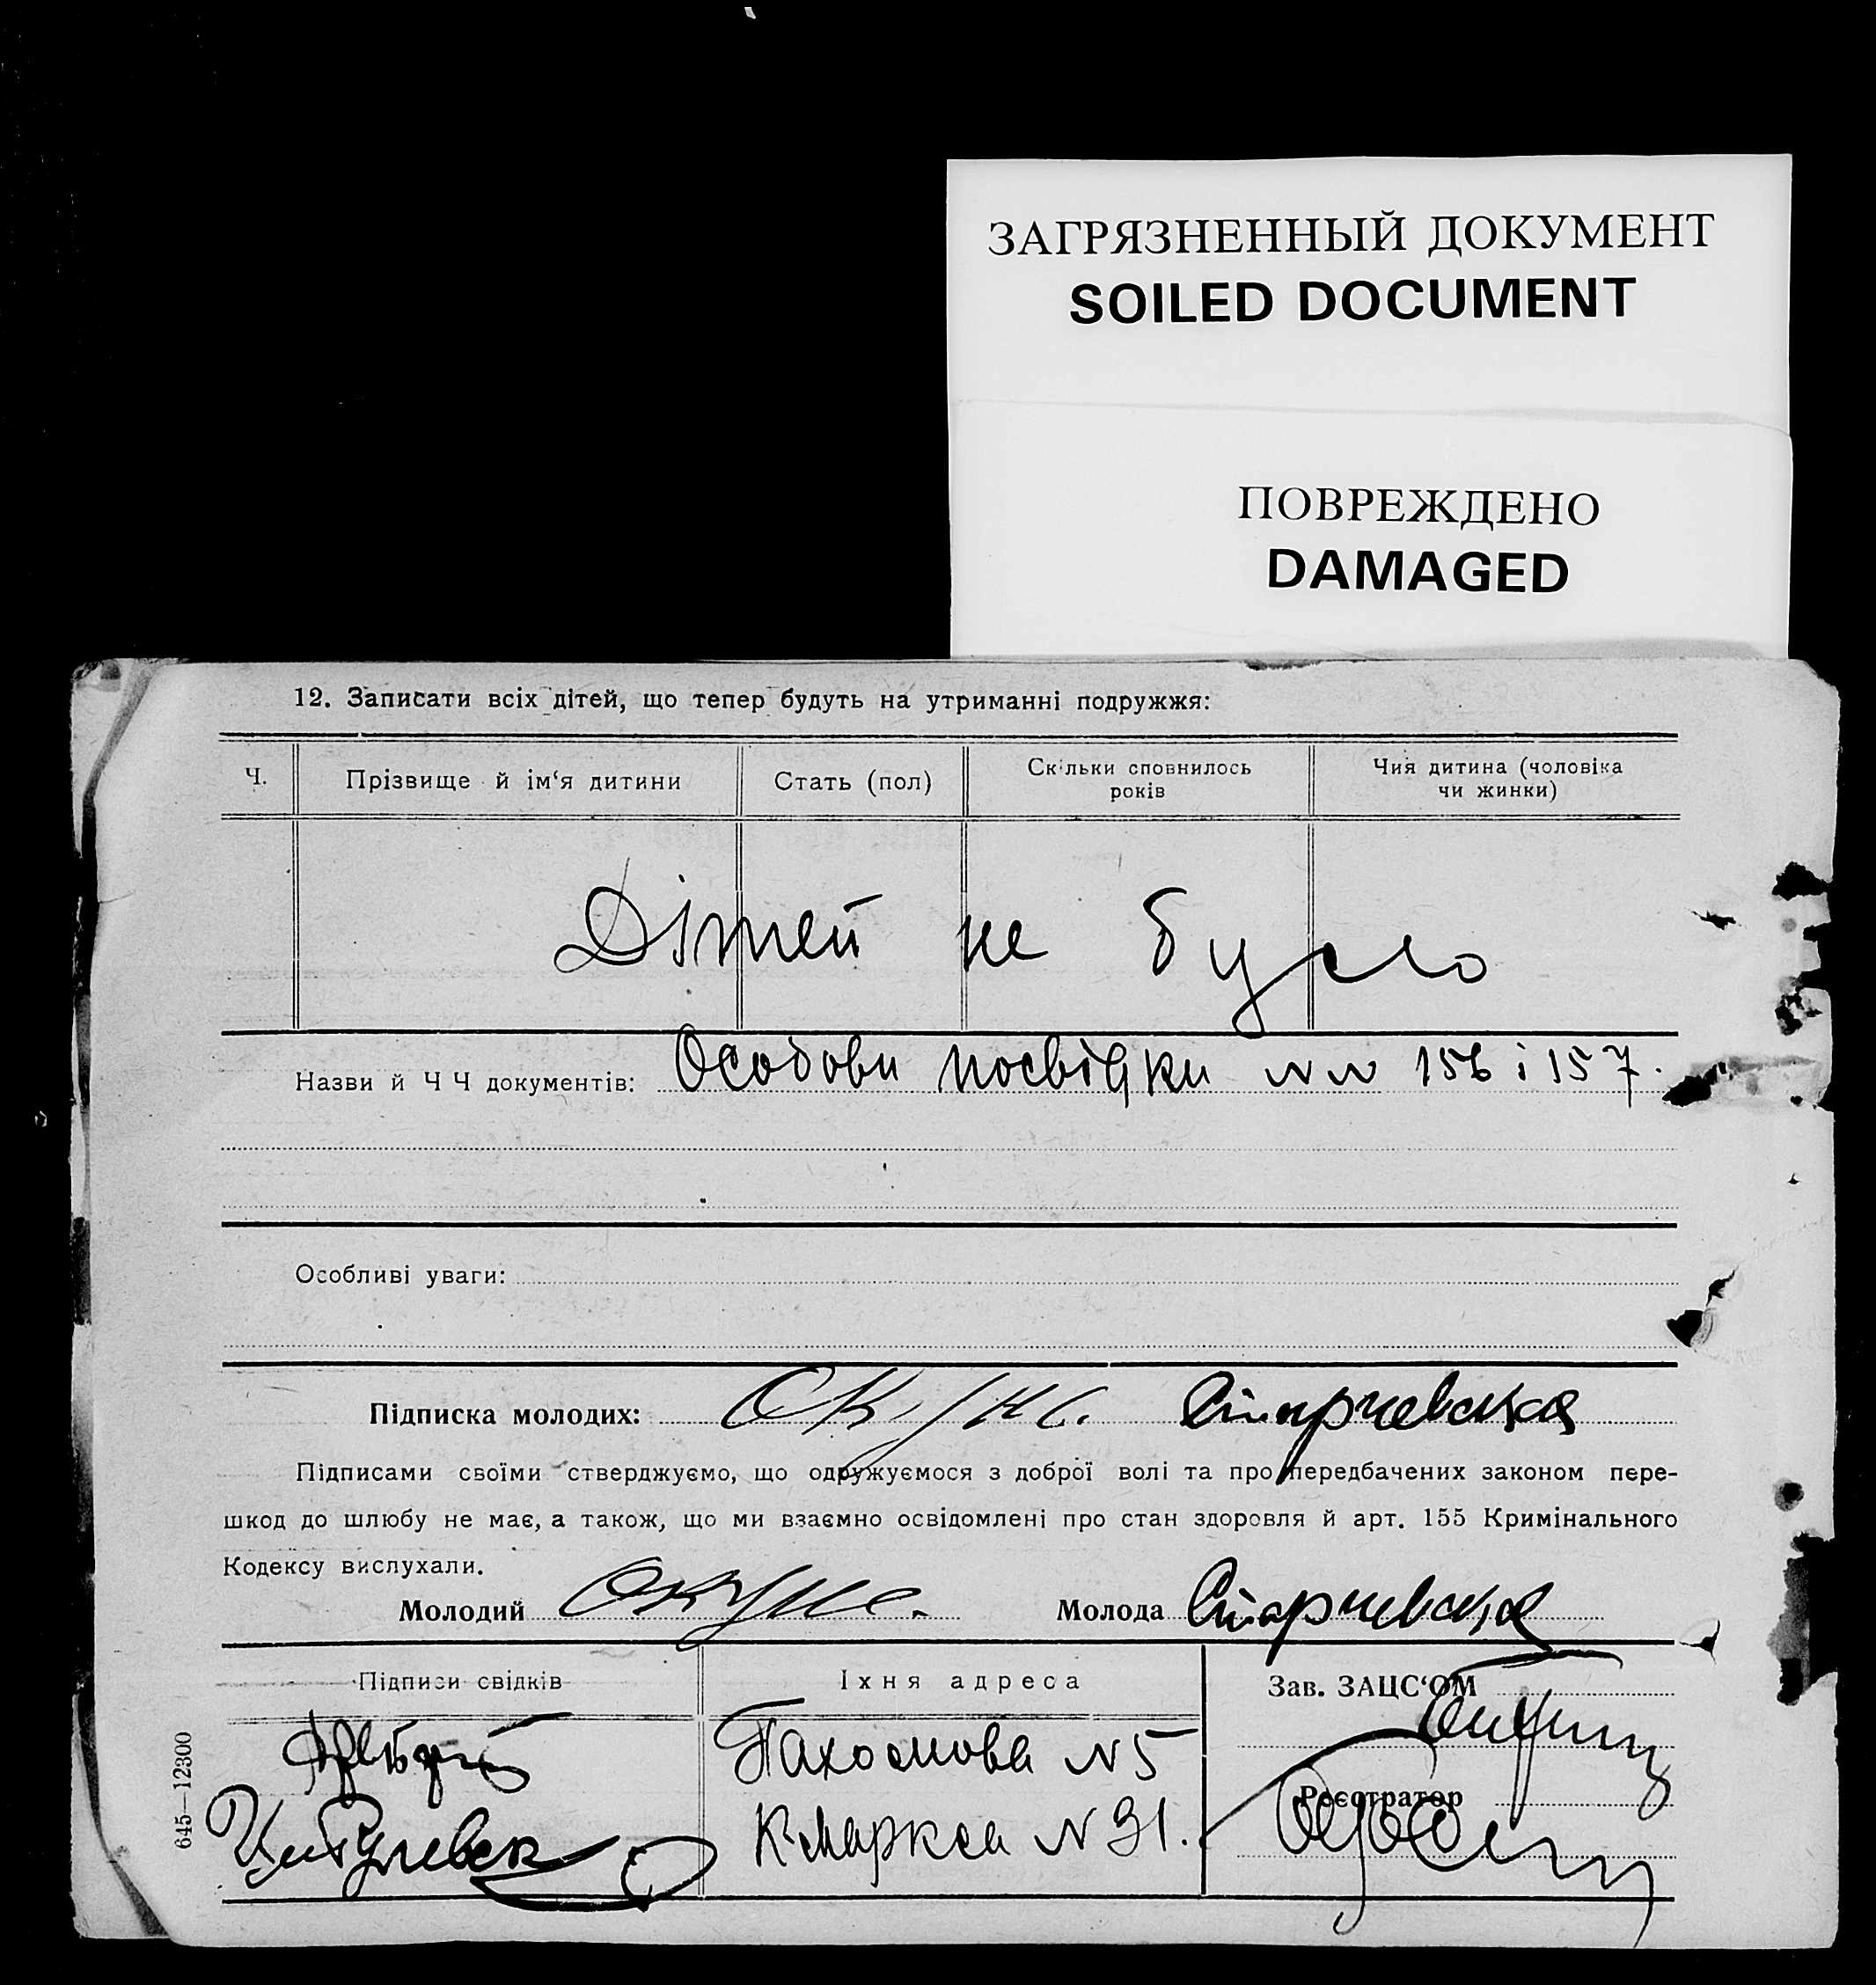 ЗАГРЯЗНЕННЫЙ ДОКУМЕНТ
SOILED DOCUMENT
ПОВРЕЖДЕНО
DAMAGED
12. Записати всіх дітей, що тепер будуть на утриманні подружжя:
Ч. Прізвище й ім‘я дитини Стать (пол) Скільки сповнилось років Чия дитина (чоловіка чи жинки)
Дітей не було
Назви й Ч Ч документів: Особови посвідки NN 156 і 157.
Особливі уваги:
Підписка молодих: Старчевська
Підписами своїми стверджуємо, що одружуємося з доброї волі та про передбачених законом пере-
шкод до шлюбу не має, а також, що ми взаємно освідомлені про стан здоровля й арт. 155 Кримінального
Кодексу вислухали.
Молодий Молода Старчевська
Підписи свідків Їхня адреса Зав. ЗАЦС‘ОМ
Пахомова N 5
Реєстратор
К Маркса N 31.
645—12300